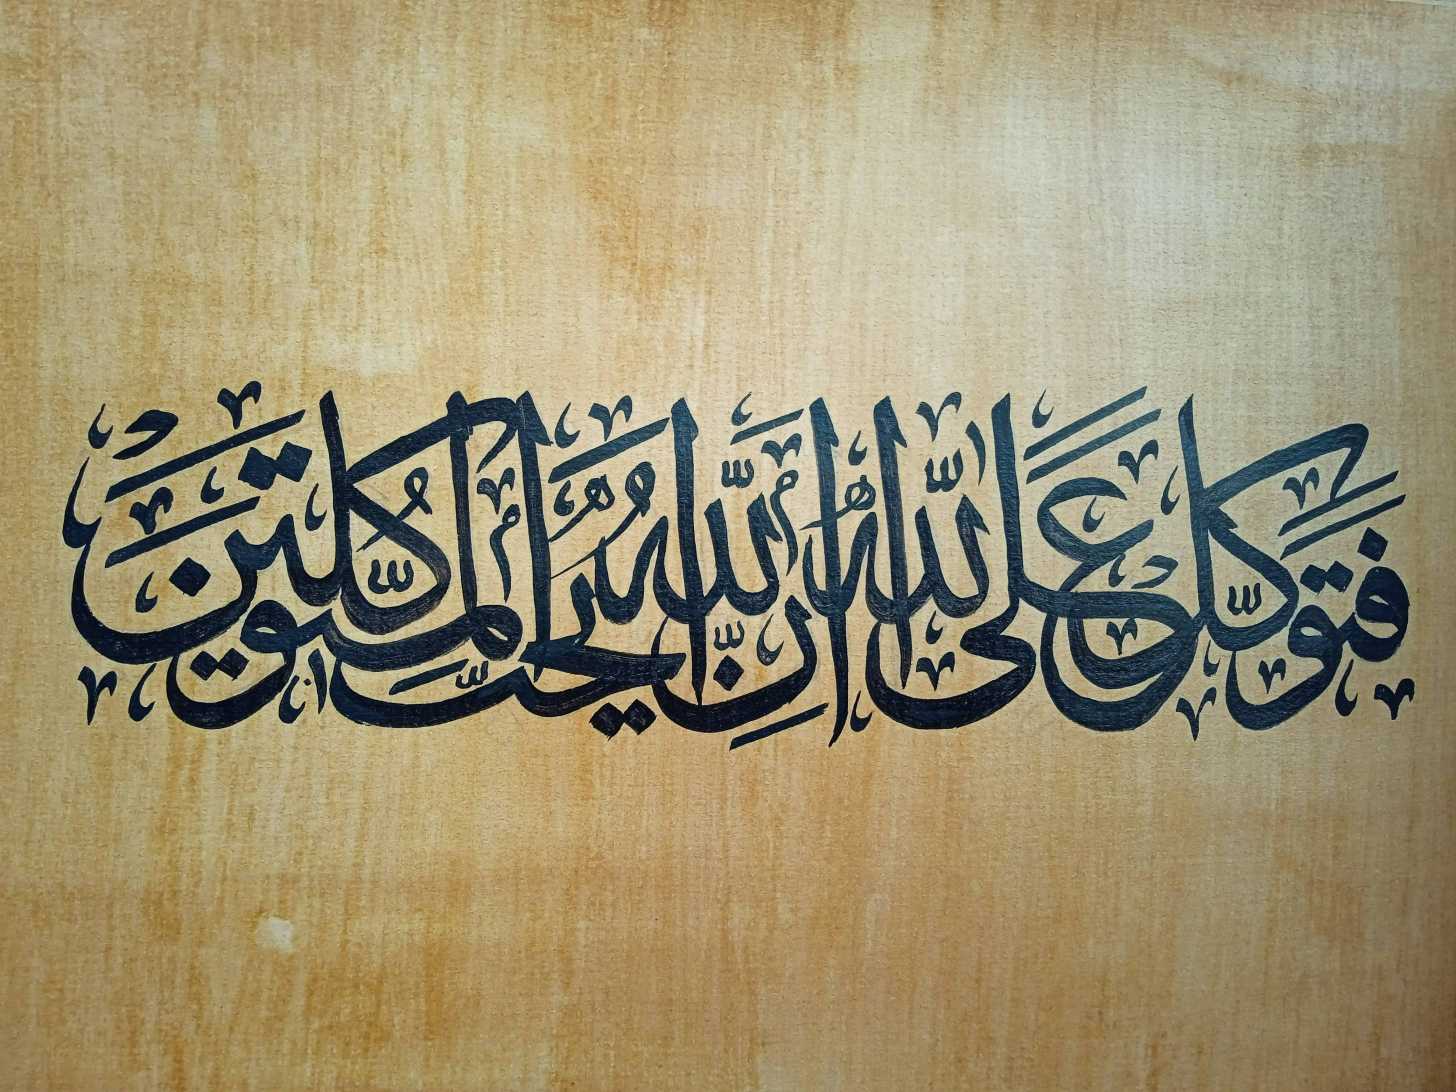 فَتَوَكَّلْ عَلَى اللّٰهِ إِنَّ اللّٰهَ يُحِبُّ الْمُتَوَكِّلِينَ